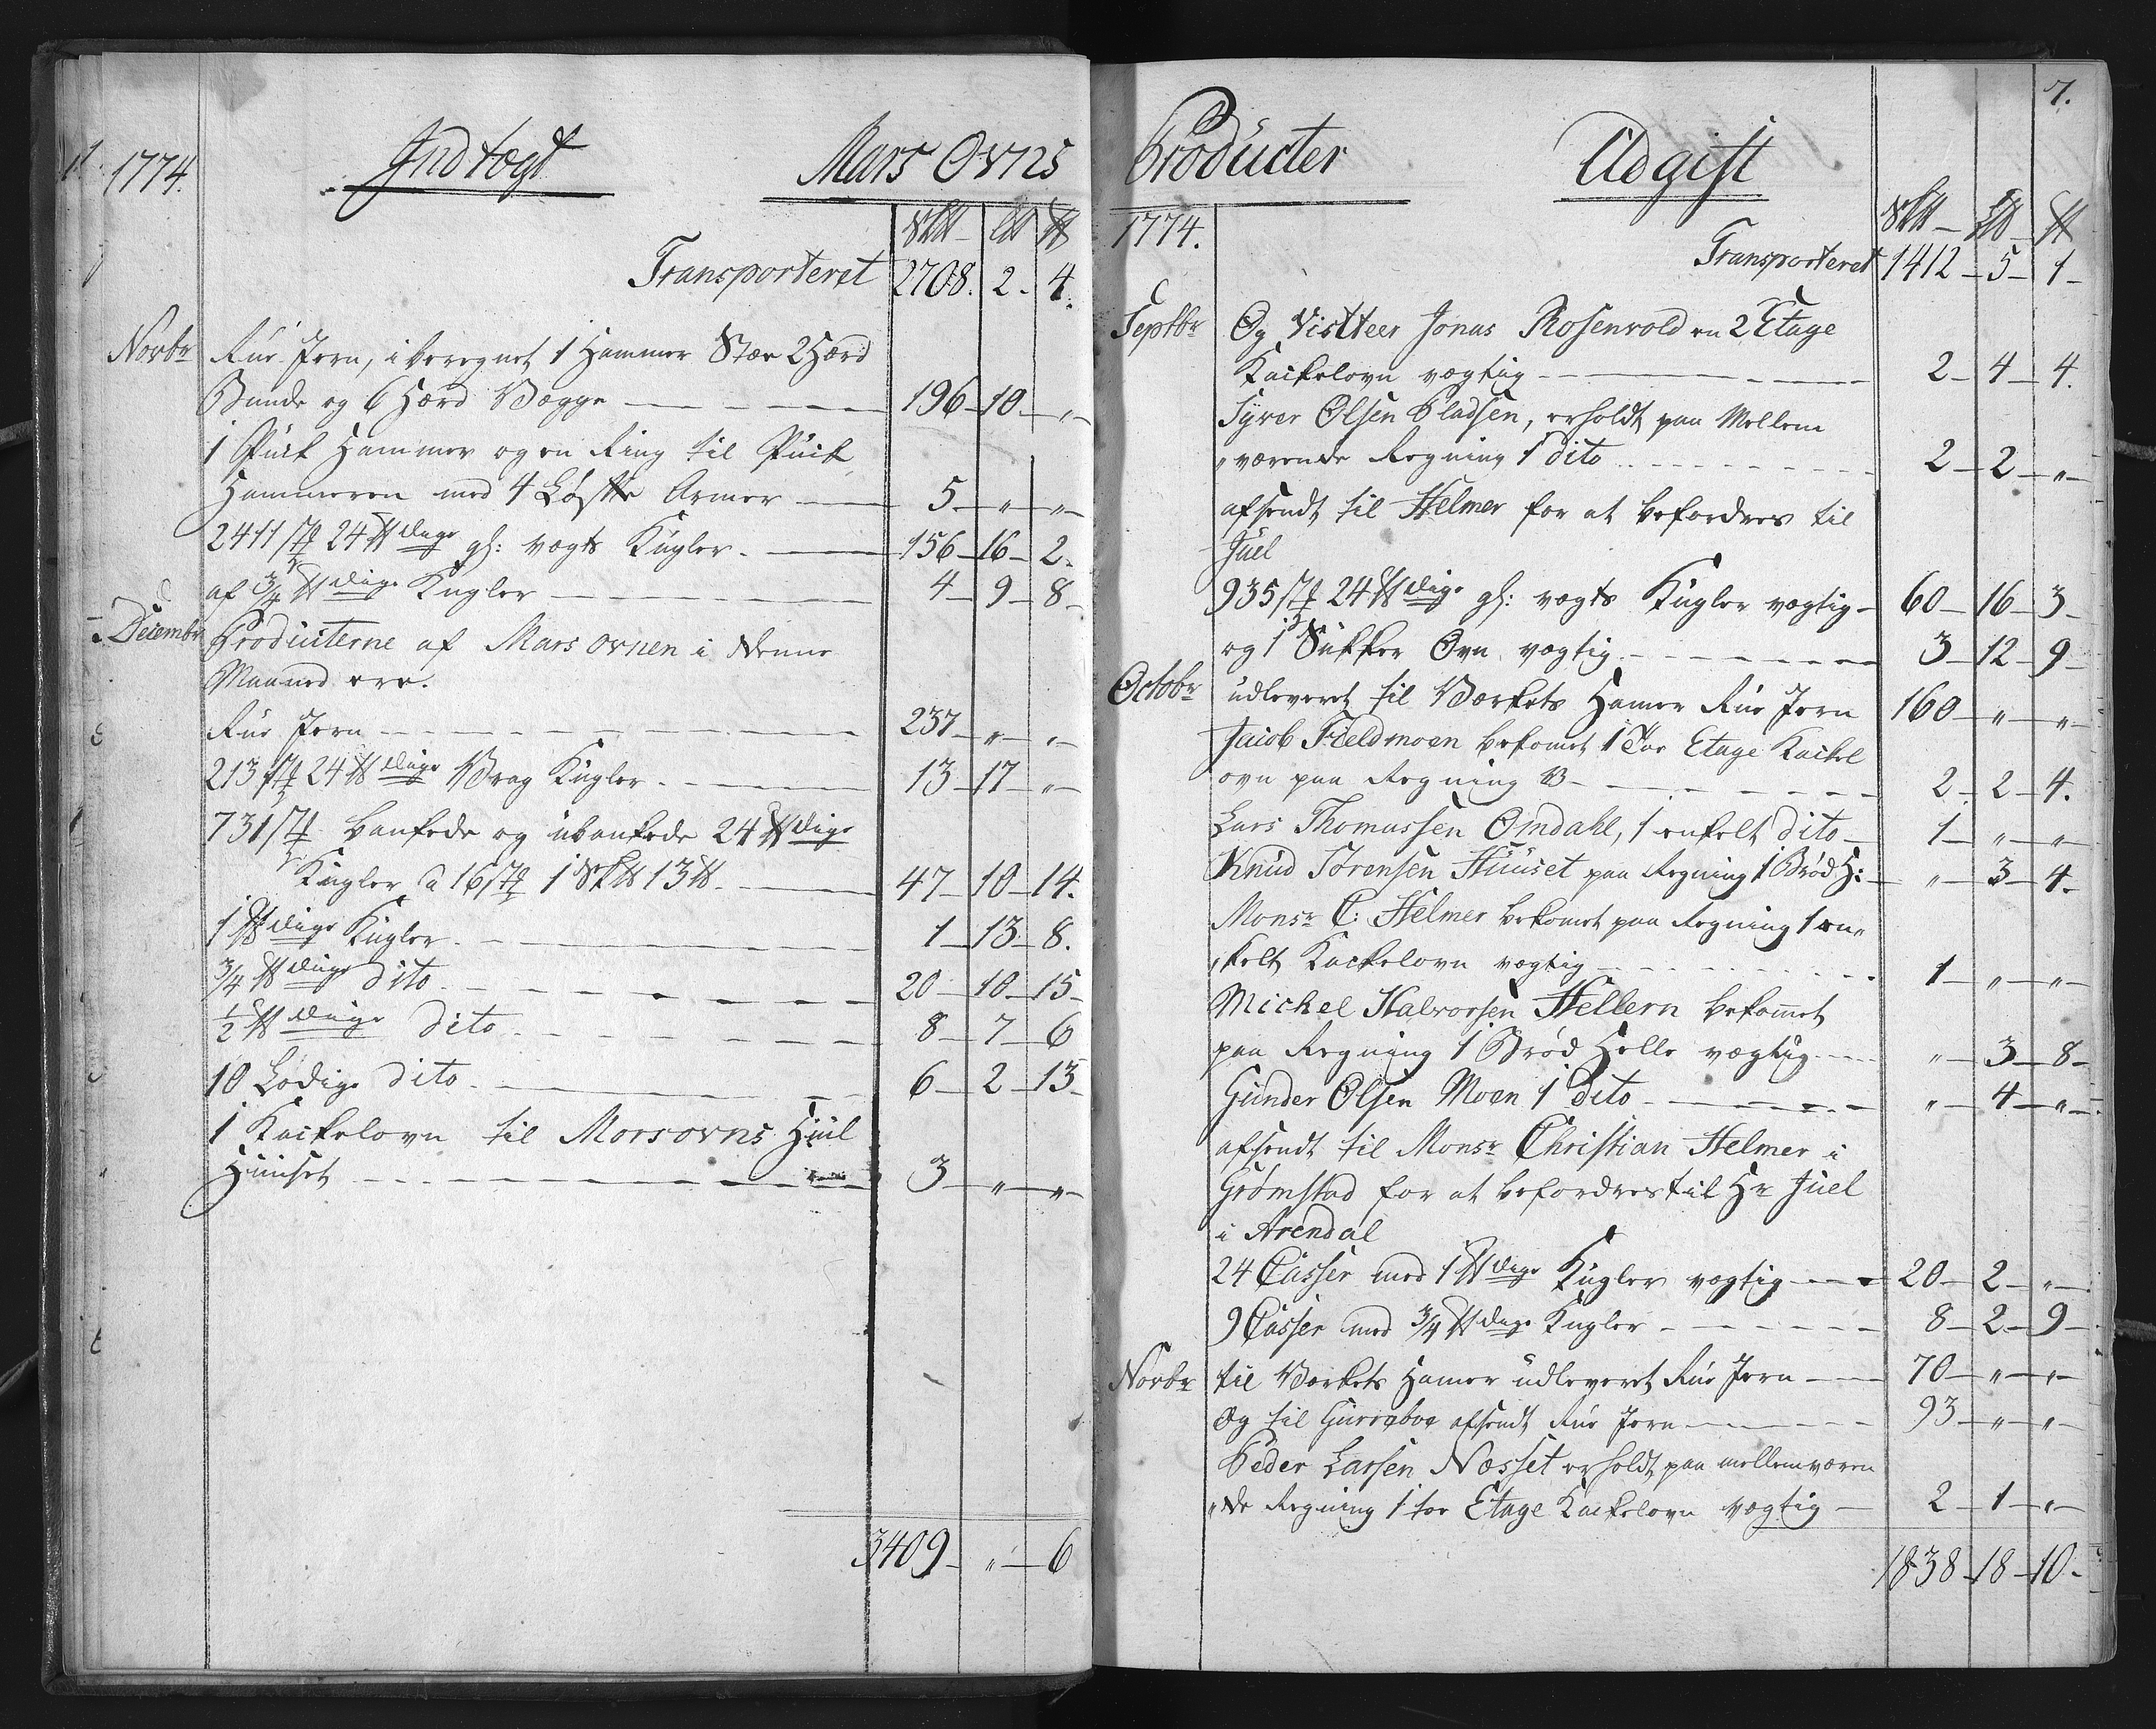 1774.
Indtægt
Mars Ovns
Sk℔ L℔ ℔
Transporteret 2708. 2. 4.
Novbr Rue Jern, i beregnet 1 Hammer Stær 2 Hærd
Bunde og 6 Hærd Vegge 196 - 10 - "
1 Puch Hammer og en Ring til Puch
Hammeren med 4 Løse Armer 5 - " - "
2411 st 24 ℔dige gl: vægts Kugler 156 - 16 - 2
af 3/4 ℔dige Kugler 4 - 9 - 8
Decembr Producterne af Mars ovnen i denne
Maaned ere.
Rue Jern 237 - " - "
213 st 24 ℔dige Vrag Kugler 13 - 17 - "
731 st bankede og ubankede 24 ℔dige
Kugler a 16 st 1 Sk℔ 13 ℔ 47 - 10 - 14.
1 ℔dige Kugler 1 - 13 - 8.
3/4 ℔dige dito 20 - 10 - 15
1/2 ℔dige dito 8 - 7 - 6
10 Lodige dito 6 - 2 - 13
1 Kackelovn til Morsovns Hiul
Huuset 3 - " - "
3409 - " - 6
7.
Producter
Udgift
1774. Sk℔ - L℔ - ℔
Transporteret 1412 - 5 - 1
Septbr Og Visiteer Jonas Rosenvold en 2 Etage
Kackelovn vægtig 2 - 4 - 4.
Syver Olsen Pladsen, erholdt paa Mellem
"værende Regning 1 dito 2 - 2 - "
afsendt til Helmer for at befordres til
Juel
935 st 24 ℔dige gl: vægts Kugler vægtig 60 - 16 - 3
og 1 Sukker Ovn vægtig 3 - 12 - 9
Octobr udleveret til Værkets Hamer Rue Jern 160 - " - "
Jacob Fieldmoen bekomet 1 Toe Etage Kackel
ovn paa Regning 2 - 2 - 4.
Lars Thomassen Omdahl, 1 enkelt dito 1 - " - "
Knud Sørensen Huuset paa Regning 1 Brød H: " - 3 - 4
Monsr C: Helmer bekomet paa Regning 1 en"
"kelt Kackelovn vægtig 1 - " - "
Michel Halvorsen Hellern bekom̄et
paa Regning 1 Brød Helle vægtig " - 3 - 8
Gunder Olsen Moen 1 dito " - 4 - "
afsendt til Monsr Christian Helmer i
Grømstad for at befordres til Hr Juel
i Arendal
24 Casser med 1 ℔dige Kugler vægtig 20 - 2 - "
9 Casser med 3/4 ℔dige Kugler 8 - 2 - 9
Novbr til Værkets Hamer udleveret Rue Jern 70 - " - "
Og til Gurreboe afsendt Rue Jern 93 - " - "
Peder Larsen Næsset erholdt paa mellemværen
"de Regning 1 toe Etage Kackelovn vægtig 2 - 1 - "
1838 - 18 - 10